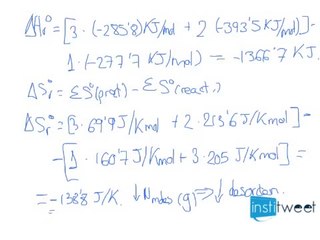 ΔHr° = [3 · (-285'8) KJ/mol + 2 (-393'5 KJ/mol)] -
1 · (-277'7 KJ/mol) = -1366'7 KJ
ΔSr° = ΣS°(prod) - ΣS°(react.)
ΔSr° = [3 · 69'9 J/Kmol + 2 · 213'6 J/Kmol] -
- [1 · 160'7 J/Kmol + 3 · 205 J/Kmol] =
= -138'8 J/K. ↓ Nmoles (g) => ↓ desorden.
institweet